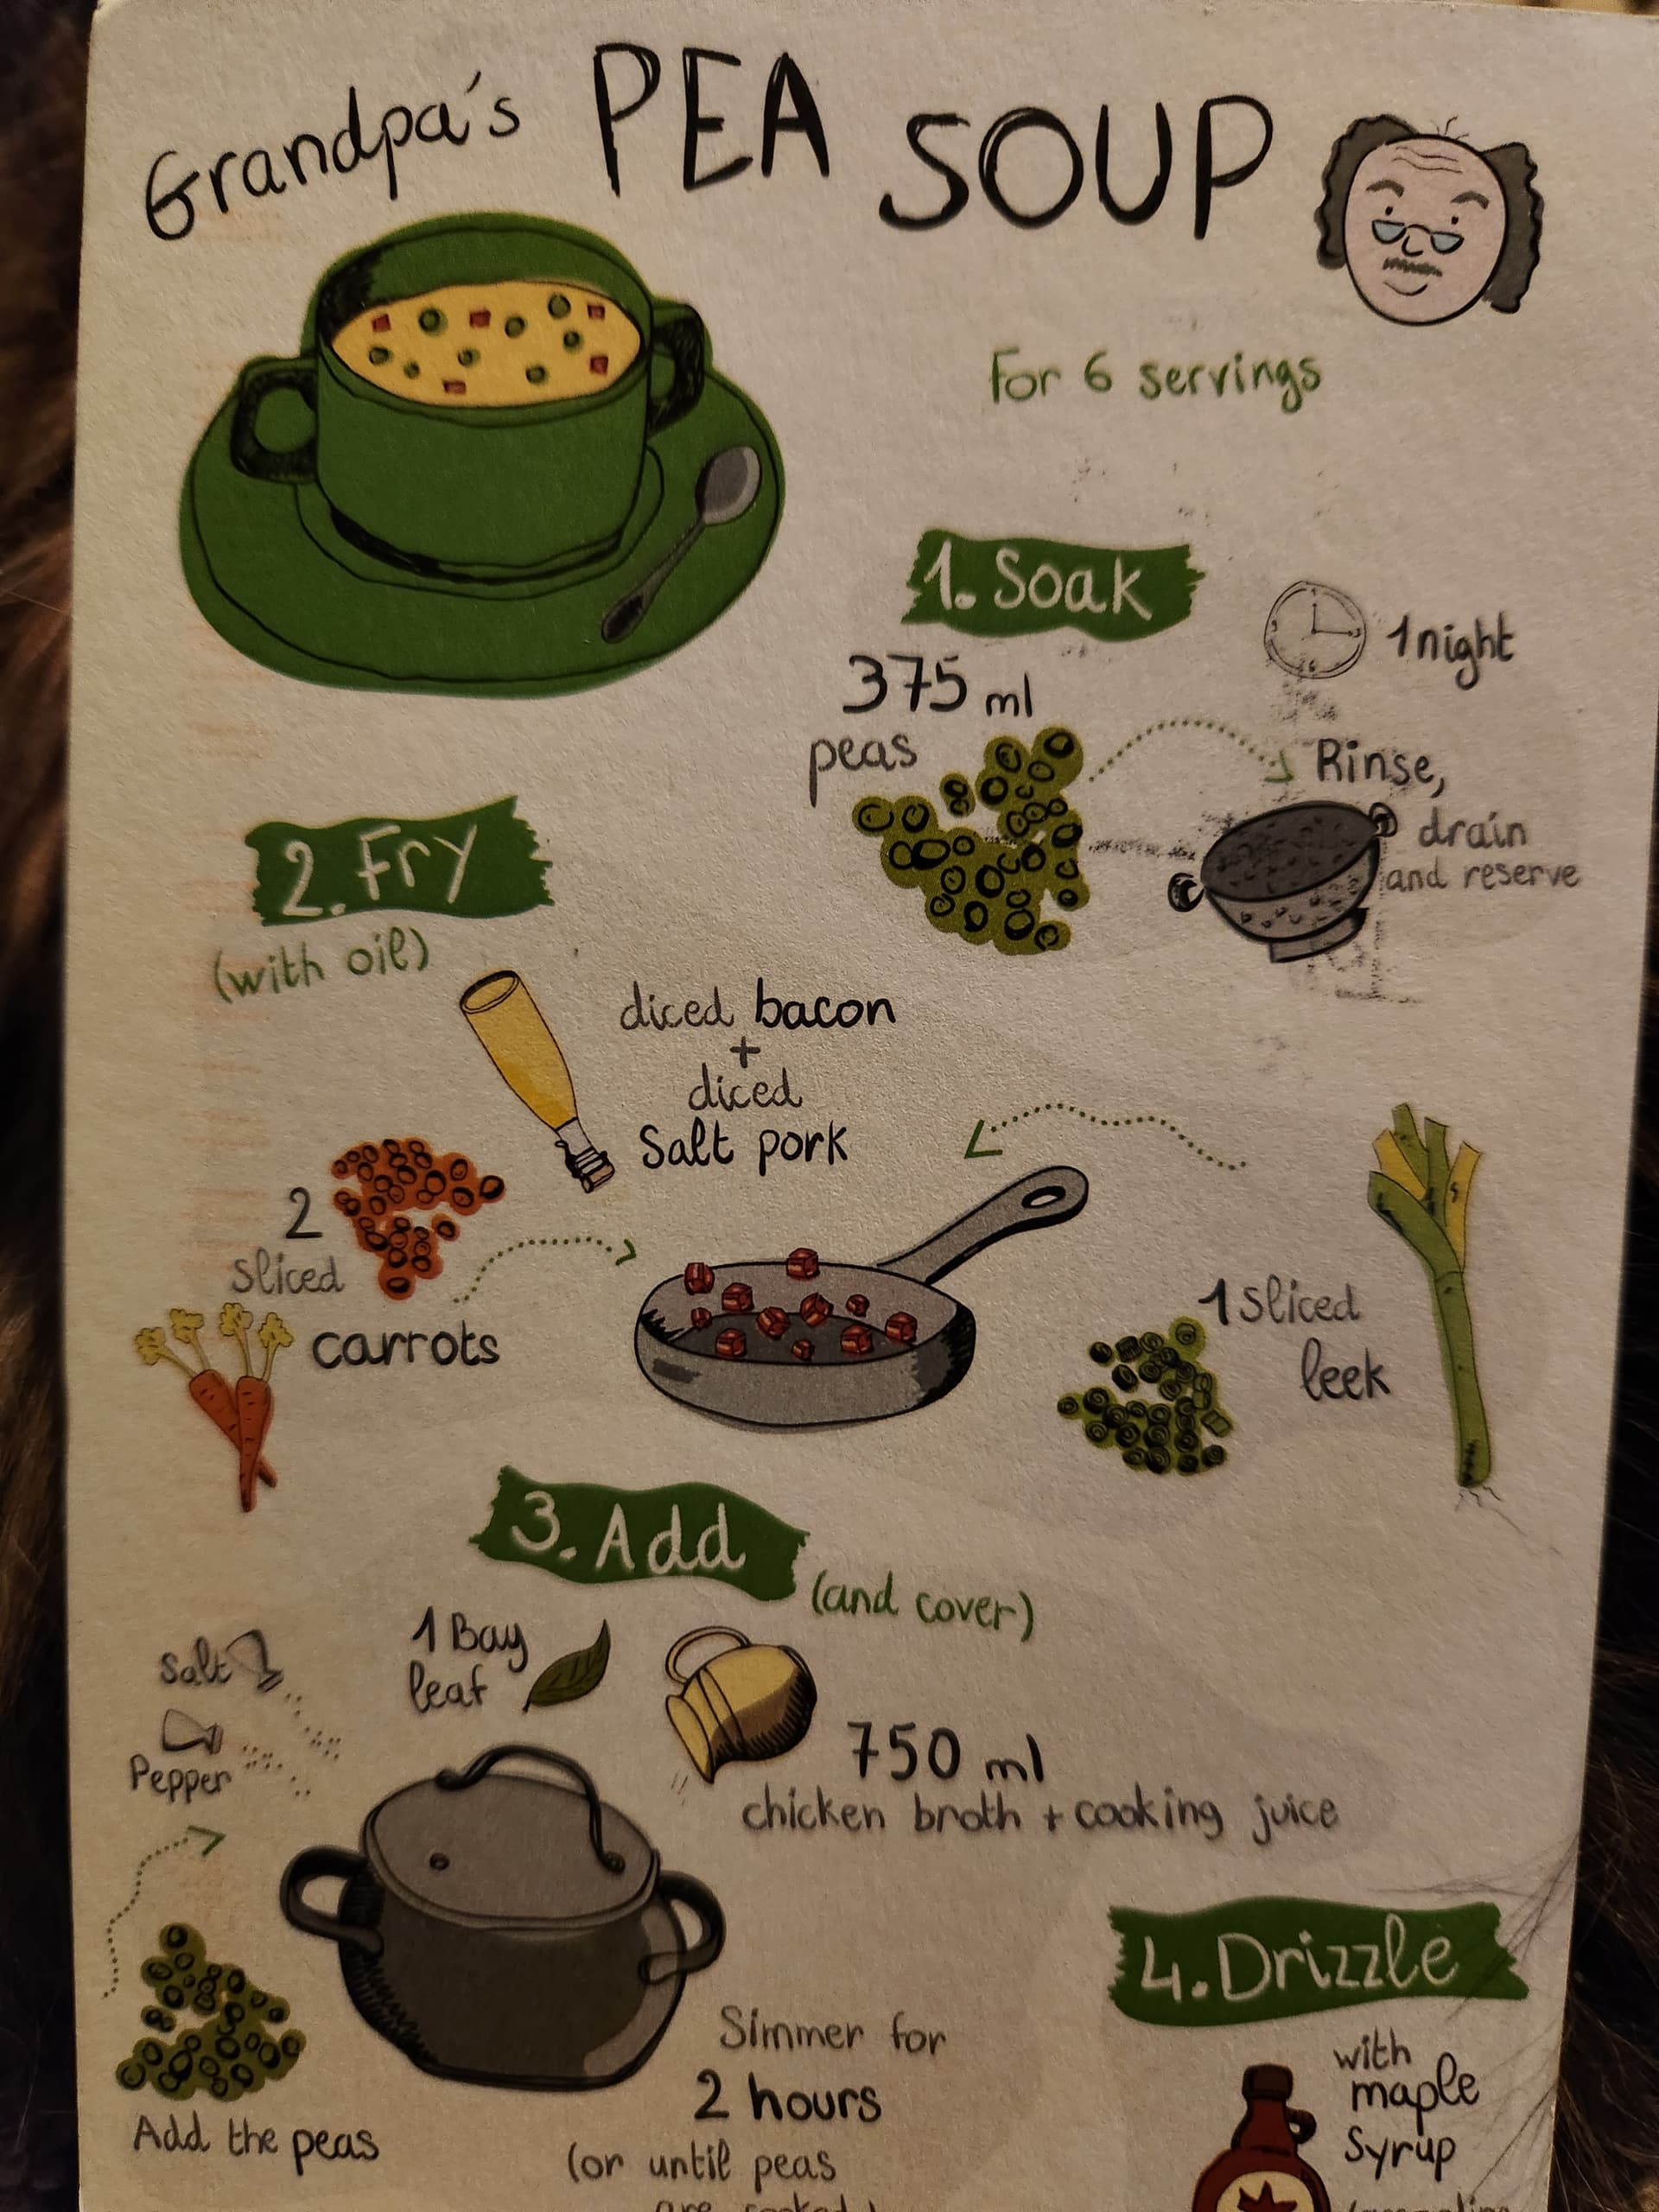 Grandpa's PEA SOUP
For 6 servings
1. Soak
1 night
375 ml
peas
Rinse,
drain
and reserve
2. Fry
(with oil)
diced bacon
+
diced
Salt pork
2
sliced
carrots
1 sliced
leek
3. Add
(and cover)
Salt
Pepper
1 Bay
leaf
750 ml
chicken broth + cooking juice
Add the peas
Simmer for
2 hours
(or until peas
are cooked)
4. Drizzle
with
maple
syrup